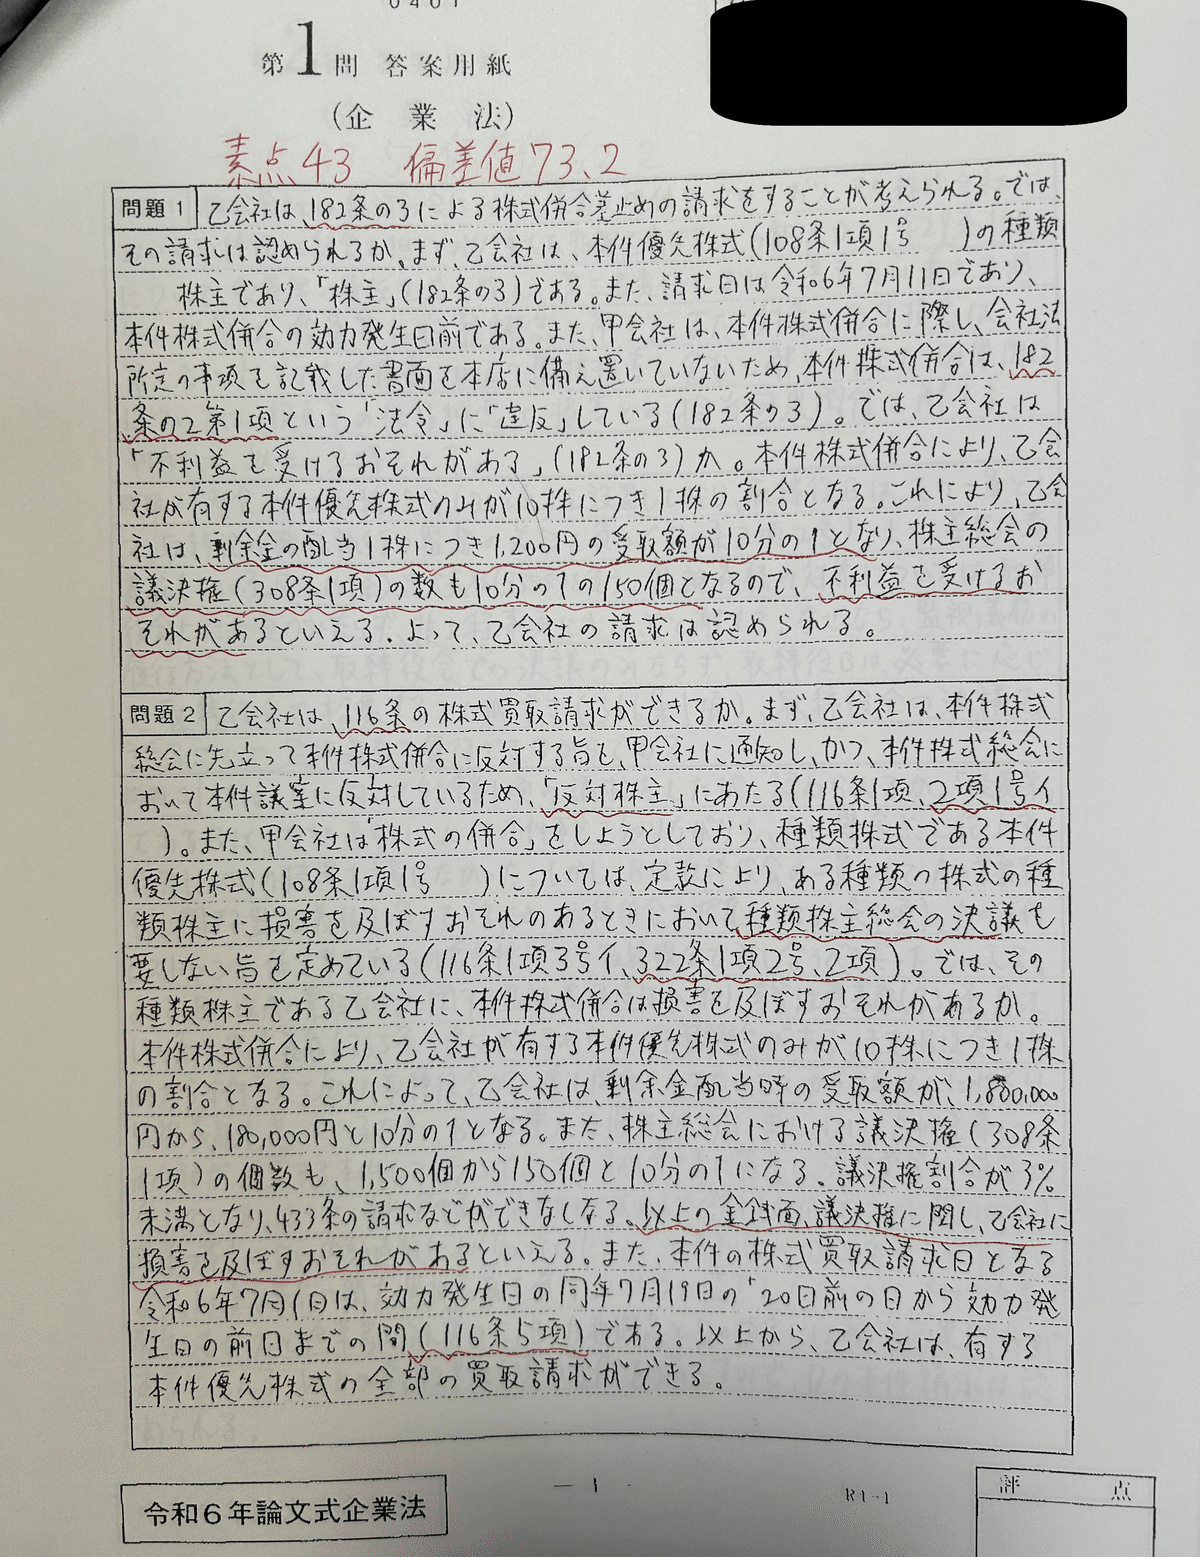 0401
第1問 答案用紙
(企業法)
素点43 偏差値73.2
問題1 乙会社は、182条の3による株式併合差止めの請求をすることが考えられる。では、
その請求は認められるか。まず、乙会社は、本件優先株式(108条1項1号 )の種類
株主であり、「株主」(182条の3)である。また、請求日は令和6年7月11日であり、
本件株式併合の効力発生日前である。また、甲会社は、本件株式併合に際し、会社法
所定の事項を記載した書面を本店に備え置いていないため、本件株式併合は、182
条の2第1項という「法令」に「違反」している(182条の3)。では、乙会社は
「不利益を受けるおそれがある」(182条の3)か。本件株式併合により、乙会
社が有する本件優先株式のみが10株につき1株の割合となる。これにより、乙会
社は、剰余金の配当1株につき1,200円の受取額が10分の1となり、株主総会の
議決権(308条1項)の数も10分の1の150個となるので、不利益を受けるお
それがあるといえる。よって、乙会社の請求は認められる。
問題2 乙会社は、116条の株式買取請求ができるか。まず、乙会社は、本件株式
総会に先立って本件株式併合に反対する旨を、甲会社に通知し、かつ、本件株式総会に
おいて本件議案に反対しているため、「反対株主」にあたる(116条1項、2項1号イ
)。また、甲会社は「株式の併合」をしようとしており、種類株式である本件
優先株式(108条1項1号 )については、定款により、ある種類の株式の種
類株主に損害を及ぼすおそれのあるときにおいて種類株主総会の決議も
要しない旨を定めている(116条1項3号イ、322条1項2号、2項)。では、その
種類株主である乙会社に、本件株式併合は損害を及ぼすおそれがあるか。
本件株式併合により、乙会社が有する本件優先株式のみが10株につき1株
の割合となる。これによって、乙会社は、剰余金配当時の受取額が、1,800,000
円から、180,000円と10分の1となる。また、株主総会における議決権(308条
1項)の個数も、1,500個から150個と10分の1になる。議決権割合が3%
未満となり、433条の請求などができなくなる。以上の金銭面、議決権に関し、乙会社に
損害を及ぼすおそれがあるといえる。また、本件の株式買取請求日となる
令和6年7月1日は、効力発生日の同年7月19日の「20日前の日から効力発
生日の前日までの間(116条5項)である。以上から、乙会社は、有する
本件優先株式の全部の買取請求ができる。
— 1 -
R1-1
評 点
令和6年論文式企業法